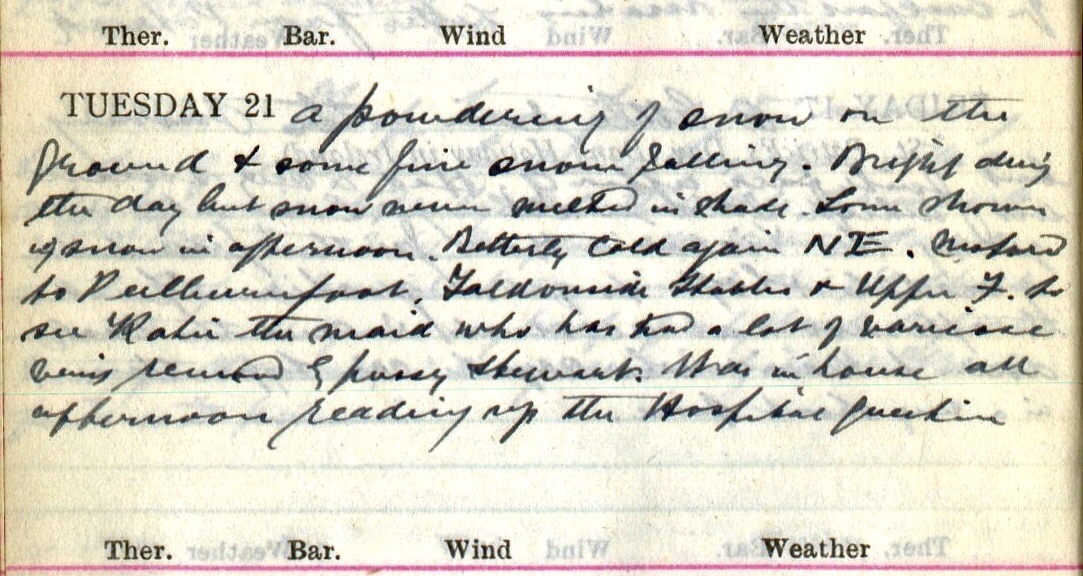 Ther. Bar. Wind Weather
TUESDAY 21 a powdering of snow on the
ground & some fine snow falling. Bright during
the day but snow never melted in shade. Some showers
of snow in afternoon. Bitterly cold again NE. Motored
to Peelburnfoot, Faldonside Stables & Upper F. to
see Katie the maid who has had a lot of varicose
veins removed by Stewart. Was in house all
afternoon reading up the Hospital question
Ther. Bar. Wind Weather